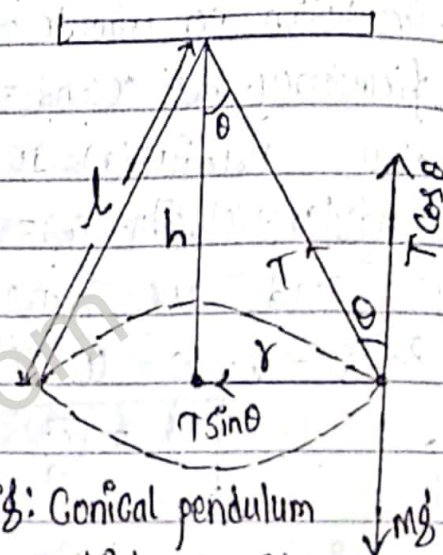 θ
l
h
T
T cosθ
θ
r
Tsinθ
om
g: Conical pendulum
mg